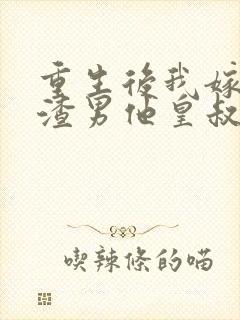 重生後我嫁
渣男他皇叔
喫辣條的喵